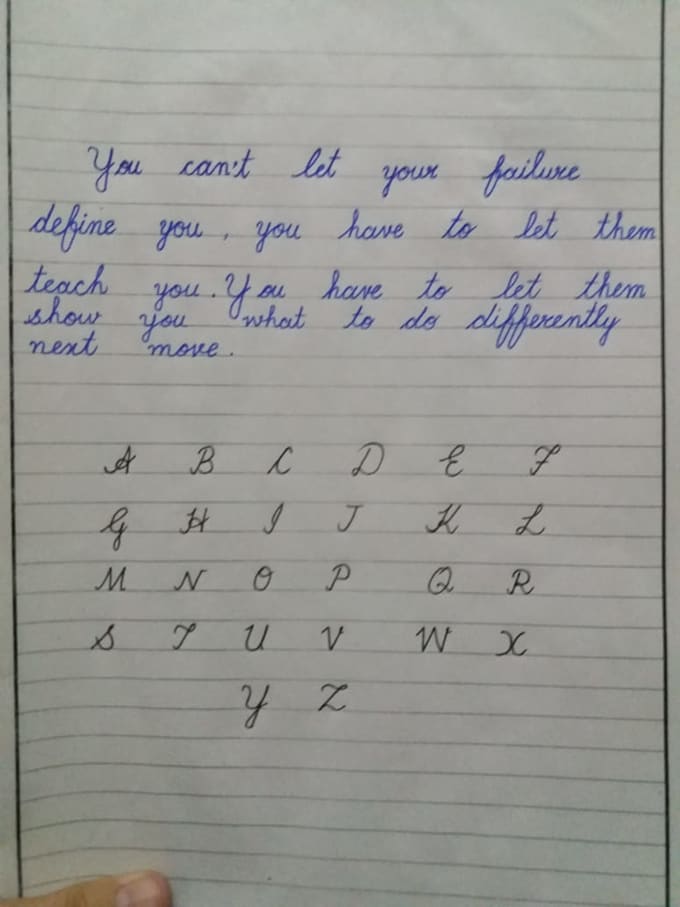 You can't let your failure
define you, you have to let them
teach you. You have to let them
show you what to do differently
next move.
A B C D E F
G H I J K L
M N O P Q R
S T U V W X
Y Z